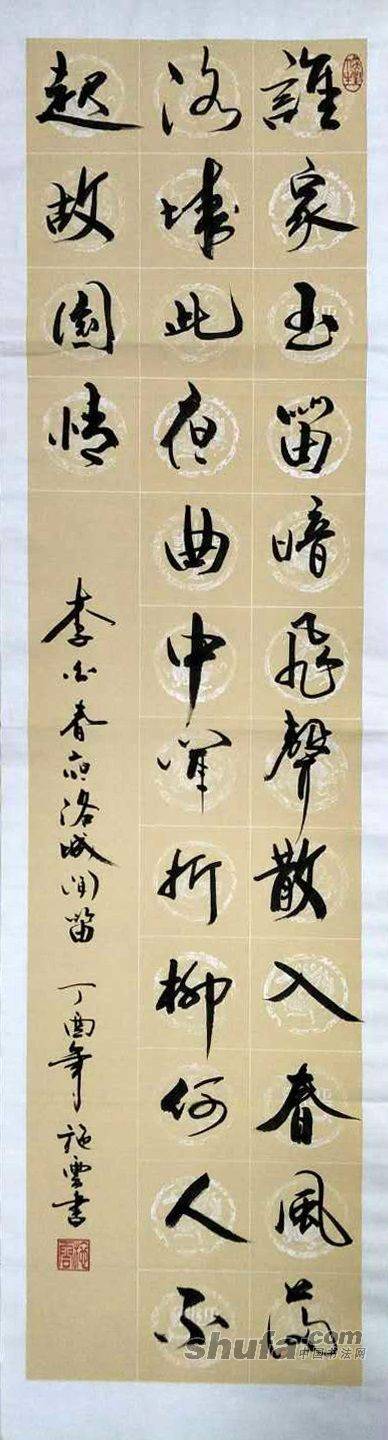 誰家玉笛暗飛聲散入春風滿
洛城此夜曲中聞折柳何人不
起故園情
李白春夜洛城聞笛 丁酉年 施雲書
shufa.com
中国书法网